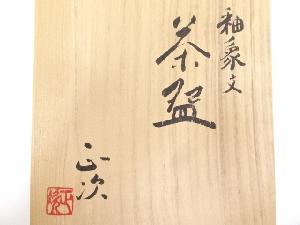 釉象文
茶盌
正次